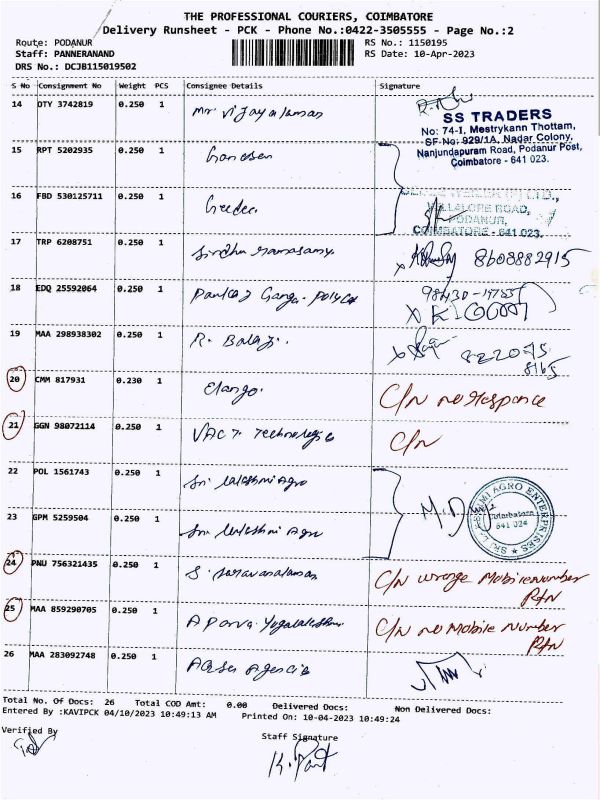 THE PROFESSIONAL COURIERS, COIMBATORE
Delivery Runsheet - PCK - Phone No.:0422-3505555 - Page No.:2
Route: PODANUR
RS No.: 1150195
Staff: PANNERANAND
RS Date: 10-Apr-2023
DRS No.: DCJB115019502
S No Consignment No Weight PCS Consignee Details Signature
14 OTY 3742819 0.250 1 Mr Vijayalaman
SS TRADERS
No: 74-I, Mestrykann Thottam,
SF No: 929/1A, Nadar Colony,
Nanjundapuram Road, Podanur Post,
Coimbatore - 641 023.
15 RPT 5202935 0.250 1 Ganesen
16 FBD 530125711 0.250 1
VELLALORE ROAD,
PODANUR,
COIMBATORE - 641 023.
17 TRP 6208751 0.250 1 Sindhu ramasamy. 8608882915
18 EDQ 25592064 0.250 1 Pankaj Ganga. Polycot
19 MAA 298938302 0.250 1 R. Balaji.
822075
8165
20 CMM 817931 0.230 1 Elango. C/N no response
21 GGN 98072114 0.250 1 VACT. Technologie C/N
22 POL 1561743 0.250 1 Sri Lakshmi Agro
M.D
SRI LAKSHMI AGRO ENTERPRISES
Coimbatore
641 024
23 GPM 5259504 0.250 1 Sri Lakshmi Agro
24 PNU 756321435 0.250 1 S. Saravanalaman C/N wrong Mobile Number
RTN
25 MAA 859290705 0.250 1 Aporva. Yogalakshmi C/N no Mobile Number
RTN
26 MAA 283092748 0.250 1
Total No. Of Docs: 26 Total COD Amt: 0.00 Delivered Docs: Non Delivered Docs:
Entered By :KAVIPCK 04/10/2023 10:49:13 AM Printed On: 10-04-2023 10:49:24
Verified By
Staff Signature